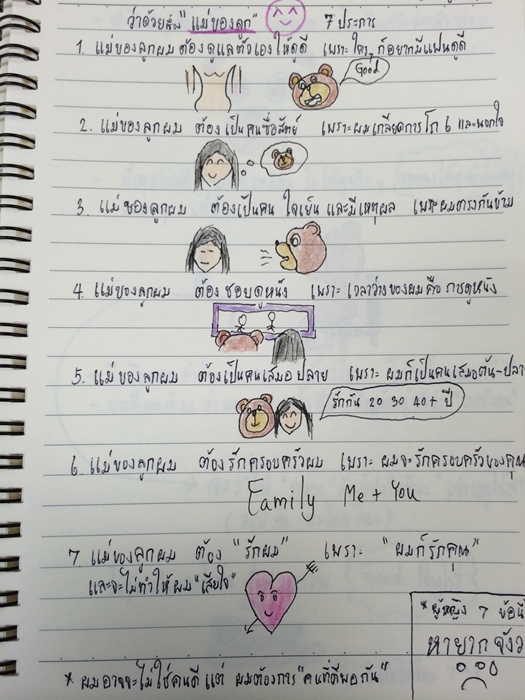 ว่าด้วยสิ่ง "แม่ของลูก" 7 ประการ
1. แม่ของลูกผม ต้องดูแลตัวเองให้ดูดี เพราะ ใครๆ ก็อยากมีแฟนดูดี
Good
2. แม่ของลูกผม ต้อง เป็นคนซื่อสัตย์ เพราะผมเกลียดการโกหก และนอกใจ
3. แม่ ของลูกผม ต้องเป็นคน ใจเย็น และมีเหตุผล เพราะผมตรงกันข้าม
4. แม่ของลูกผม ต้อง ชอบดูหนัง เพราะ เวลาว่างของผมคือ การดูหนัง
5. แม่ ของลูกผม ต้องเป็นคนเสมอปลาย เพราะ ผมก็เป็นคนเสมอต้น-ปลา
รักกัน 20 30 40+ ปี
6. แม่ของลูกผม ต้อง รักครอบครัวผม เพราะ ผมจะรักครอบครัวของคุณ
Family Me + You
7. แม่ของลูกผม ต้อง "รักผม" เพราะ "ผมก็รักคุณ"
และจะไม่ทำให้ผม "เสียใจ"
* ผู้หญิง 7 ข้อนี้
หายากจังว
* ผมอาจจะไม่ใช่คนดี แต่ ผมต้องการ "คนที่ดีพอกัน"